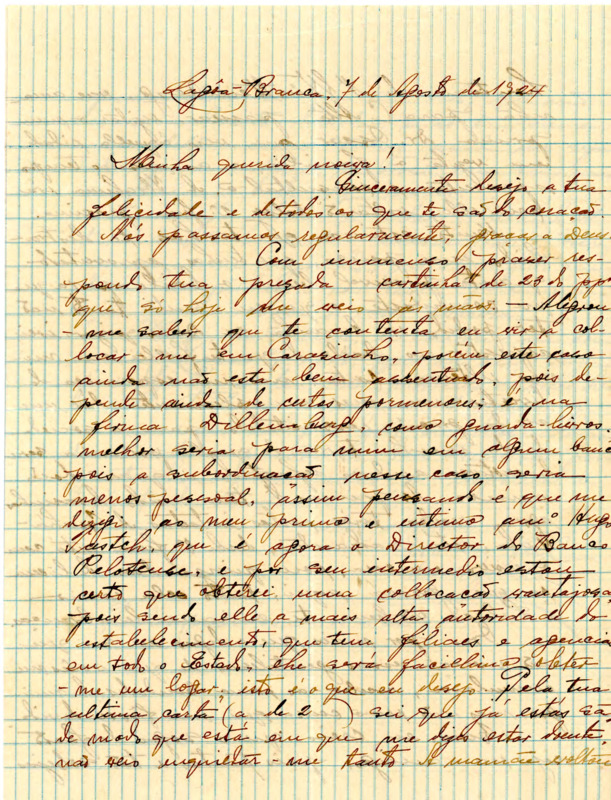 Lagôa-Branca, 7 de Agosto de 1924
Minha querida noiva!
Sinceramente desejo a tua
felicidade e de todos os que te são do coração
Nós passamos regularmente, graças a Deus.
Com immenso prazer res-
pondo tua prezada cartinha de 23 do pp.
que só hoje me veio ás mãos. — Alegrou
-me saber que te contenta eu vir a col-
locar me em Carazinho, porém este caso
ainda não está bem assentado, pois de-
pende ainda de certos pormenores; é na
firma Dillenburg, como guarda-livros.
melhor seria para mim em algum banco
pois a subordinação nesse caso seria
menos pessoal, assim pensando é que me
dizigi ao meu primo e intimo amº Hugo
que é agora o Director do Banco
Pelotense, e por seu intermedio estou
certo que obterei uma collocação vantajosa
pois sendo elle a mais alta autoridade do
estabelecimento, que tem filiaes e agencia
em todo o Estado, lhe será facillimo obter
-me um logar, isto é o que eu desejo. Pela tua
ultima carta (a de 2 ) sei que já estas sã
de modo que esta em que me dizes estar doente
não veio inquietar-me tanto. A mamãe voltou